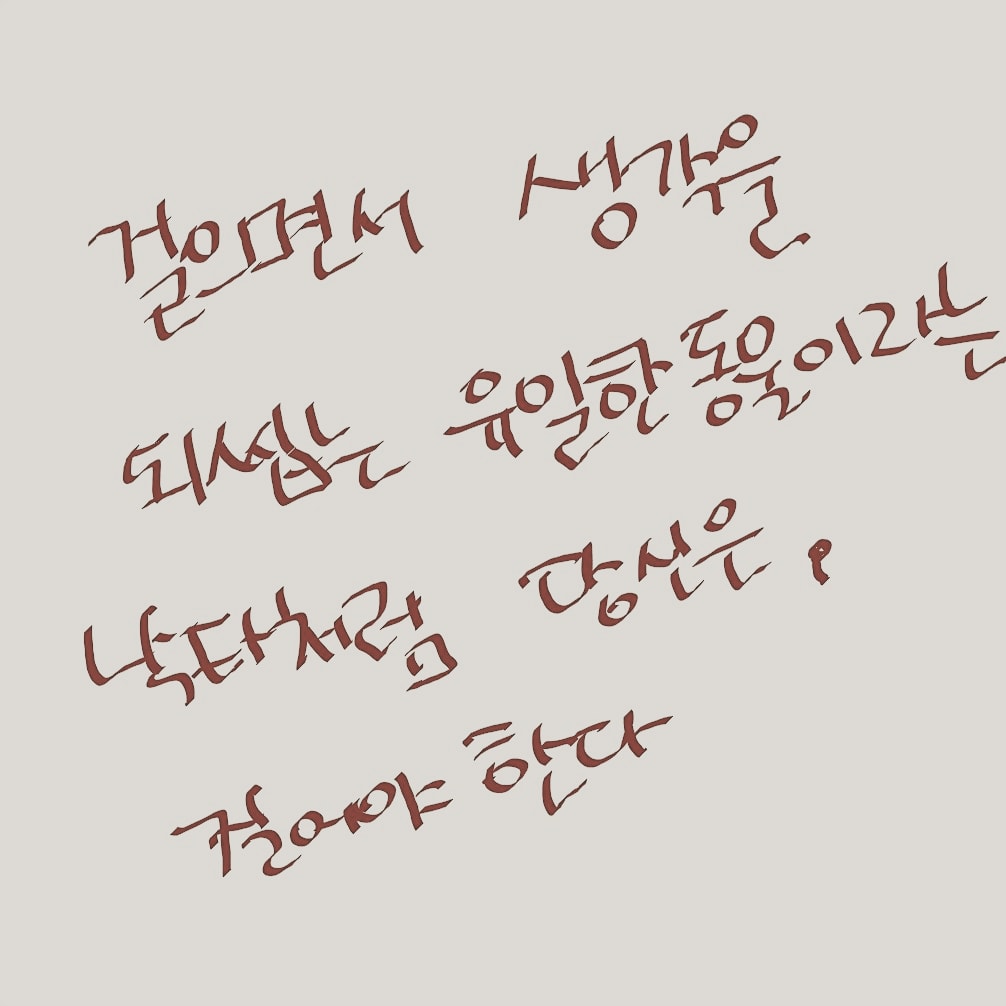 걸으면서 생각을
되씹는 유일한 동물이라는
낙타처럼 당신은,
걸어야 한다